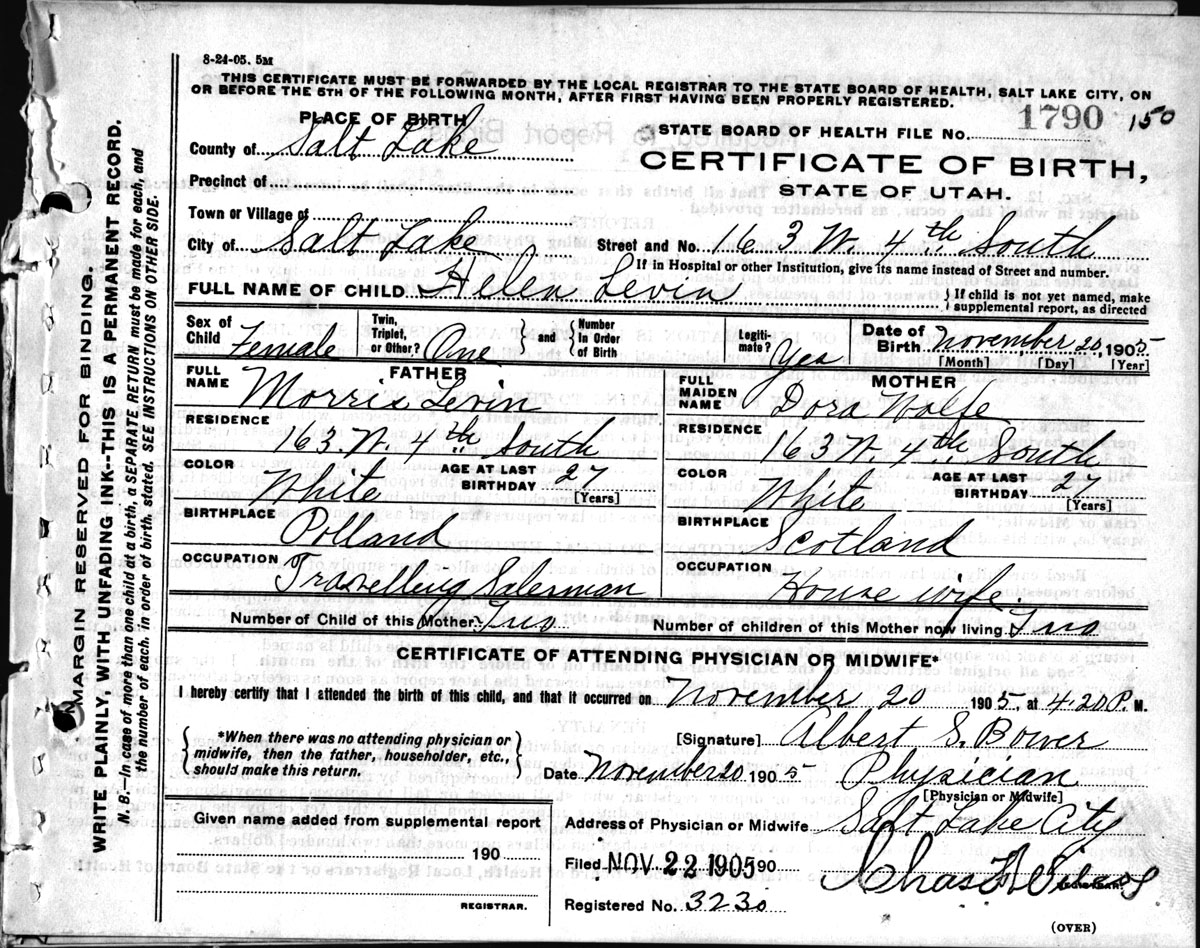 8-24-05. 5M
THIS CERTIFICATE MUST BE FORWARDED BY THE LOCAL REGISTRAR TO THE STATE BOARD OF HEALTH, SALT LAKE CITY, ON
OR BEFORE THE 5TH OF THE FOLLOWING MONTH, AFTER FIRST HAVING BEEN PROPERLY REGISTERED.
PLACE OF BIRTH
STATE BOARD OF HEALTH FILE NO. 1790 150
County of Salt Lake
CERTIFICATE OF BIRTH,
STATE OF UTAH.
Precinct of
Town or Village of
City of Salt Lake Street and No. 163 W. 4th South
If in Hospital or other Institution, give its name instead of Street and number.
FULL NAME OF CHILD Helen Levin
If child is not yet named, make supplemental report, as directed
Sex of Child Female Twin, Triplet, or Other? One and Number in Order of Birth Legiti-mate? Yes Date of Birth November 20, 1905
[Month] [Day] [Year]
FATHER
FULL NAME Morris Levin
RESIDENCE 163 W. 4th South
COLOR White AGE AT LAST BIRTHDAY 27 [Years]
BIRTHPLACE Polland
OCCUPATION Travelling Salesman
MOTHER
FULL MAIDEN NAME Dora Wolfe
RESIDENCE 163 W. 4th South
COLOR White AGE AT LAST BIRTHDAY 27 [Years]
BIRTHPLACE Scotland
OCCUPATION House wife
Number of Child of this Mother Two Number of children of this Mother now living Two
CERTIFICATE OF ATTENDING PHYSICIAN OR MIDWIFE*
I hereby certify that I attended the birth of this child, and that it occurred on November 20 1905, at 4.20 P. M.
*When there was no attending physician or
midwife, then the father, householder, etc.,
should make this return.
[Signature] Albert S. Bower
Date November 20 1905 Physician
[Physician or Midwife]
Given name added from supplemental report
190
REGISTRAR.
Address of Physician or Midwife Salt Lake City
Filed NOV 22 1905 90 Chas
Registered No. 3230
(OVER)
MARGIN RESERVED FOR BINDING.
WRITE PLAINLY, WITH UNFADING INK--THIS IS A PERMANENT RECORD.
N. B.--In case of more than one child at a birth, a SEPARATE RETURN must be made for each, and
the number of each, in order of birth, stated. SEE INSTRUCTIONS ON OTHER SIDE.